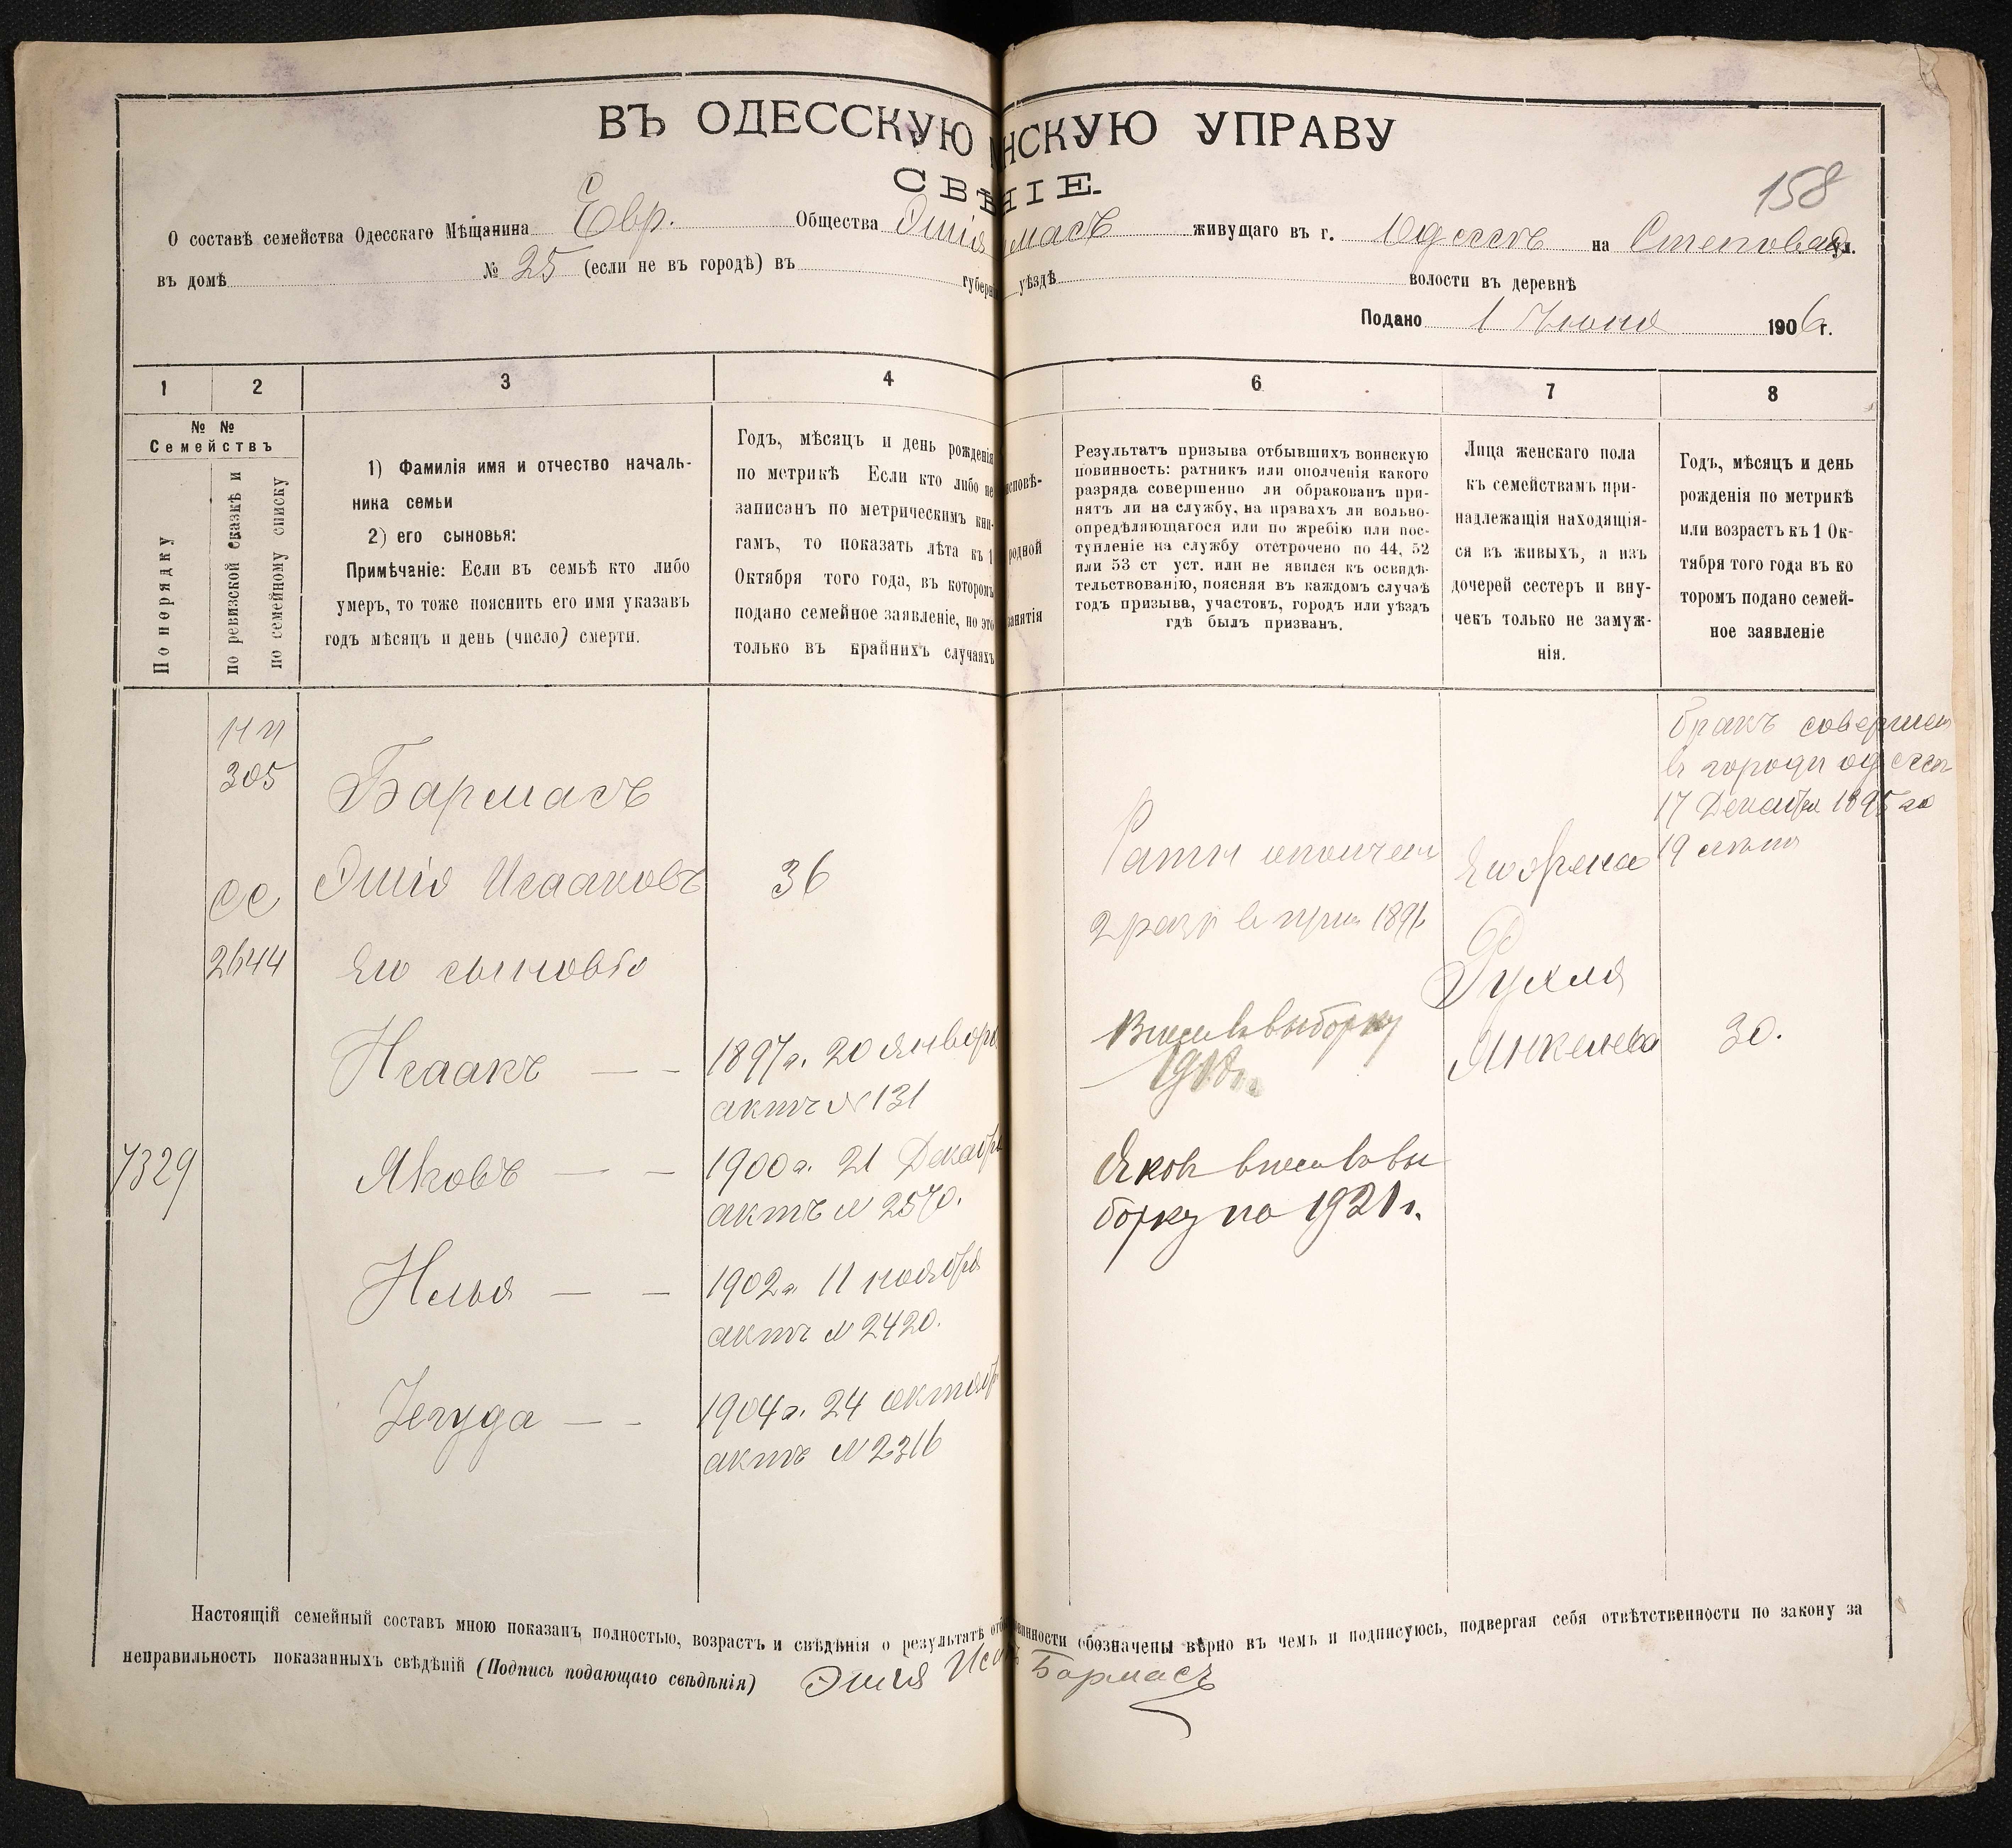 ВЪ ОДЕССКУЮ НСКУЮ УПРАВУ
СВѢ НІЕ.
158
О составѣ семейства Одесскаго Мѣщанина Евр. Общества Эшія масъ живущаго въ г. Одессѣ на Степовая ул.
въ домѣ № 25 (если не въ городѣ) въ губерн уѣздѣ волости въ деревнѣ
Подано 1 Июня 1906 г.
1 2 3 4 6 7 8
№ № Семействъ
По порядку
по ревизской сказкѣ и
по семейному списку
1) Фамилія имя и отчество началь-
ника семьи
2) его сыновья:
Примѣчаніе: Если въ семьѣ кто либо
умеръ, то тоже пояснить его имя указавъ
годъ мѣсяцъ и день (число) смерти.
Годъ, мѣсяцъ и день рожденія
по метрикѣ Если кто либо не
записанъ по метрическимъ кни-
гамъ, то показать лѣта къ 1
Октября того года, въ которомъ
подано семейное заявленіе, но это
только въ крайнихъ случаяхъ
исповѣ-
родной
занятія
Результатъ призыва отбывшихъ воинскую
повинность: ратникъ или ополченія какого
разряда совершенно ли обракованъ при-
нятъ ли на службу, на правахъ ли вольно-
опредѣляющагося или по жребію или пос-
тупленіе на службу отсрочено по 44, 52
или 53 ст уст. или не явился къ освидѣ-
тельствованію, поясняя въ каждомъ случаѣ
годъ призыва, участокъ, городъ или уѣздъ
гдѣ былъ призванъ.
Лица женскаго пола
къ семействамъ при-
надлежащія находящія-
ся въ живыхъ, а изъ
дочерей сестеръ и вну-
чекъ только не замуж-
нія.
Годъ, мѣсяцъ и день
рожденія по метрикѣ
или возрастъ къ 1 Ок-
тября того года въ ко
торомъ подано семей-
ное заявленіе
305
Бармасъ
Эшія Исааковъ 36
2644
Его сыновья
Исаакъ — — 1897 г. 20 января
актъ № 131
7329
Яковъ — — 1900 г. 21 Декабря
актъ № 2570.
Илья — — 1902 г. 11 ноября
актъ № 2420.
Іегуда — — 1904 г. 24 октября
актъ № 2316
Ратн ополчен
2 разр в приз 189
Внесен в выборку
1918 г.
Яков внесен в вы
борку по 1921 г.
Его жена
Рухля
Янкелева 30.
бракъ совершен
в городи одессы
17 Декабря 1895 го
Настоящій семейный составъ мною показанъ полностью, возрастъ и свѣдѣнія о результатѣ отб винности обозначены вѣрно въ чемъ и подписуюсь, подвергая себя отвѣтственности по закону за
неправильность показанныхъ свѣдѣній (Подпись подающаго свѣдѣнія) Эшия Иса Бармасъ